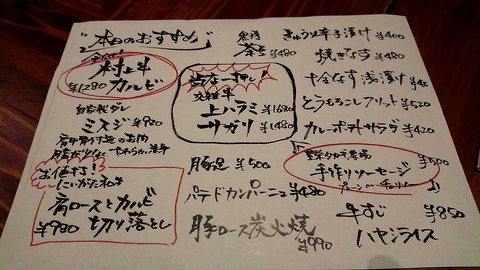 本日のおすすめ
村上牛
カルビ
¥1280
自家製ダレ
ミスジ ¥980
お値打!
にいがた和牛
肩ロースとカルビ
¥980 切り落とし
当店一押し!
交雑牛
上ハラミ ¥1680
サガリ ¥1480
豚足 ¥500
パテドカンパーニュ ¥480
豚ロース炭火焼
¥990
きゅうり辛子漬け ¥400
茶豆 ¥480
焼きなす ¥480
十全なす浅漬け
とうもろこしフリット ¥520
カレーポテトサラダ ¥420
手作りソーセージ ¥500
牛すじ ¥850
ハヤシライス